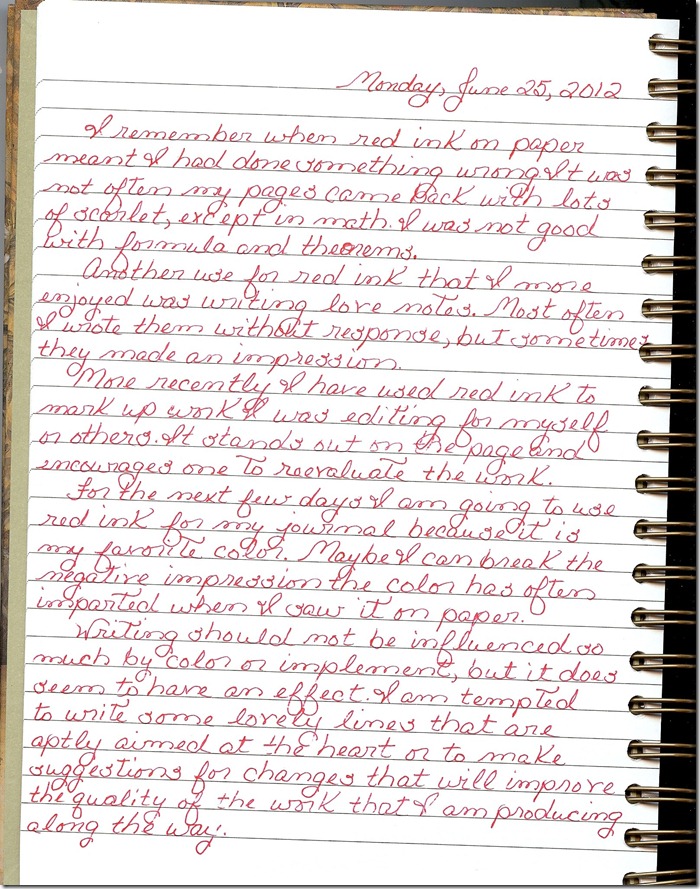 Monday, June 25, 2012
I remember when red ink on paper
meant I had done something wrong. It was
not often my pages came back with lots
of scarlet, except in math. I was not good
with formula and theorems.
Another use for red ink that I more
enjoyed was writing love notes. Most often
I wrote them without response, but sometimes
they made an impression.
More recently I have used red ink to
mark up work I was editing for myself
or others. It stands out on the page and
encourages one to reevaluate the work.
For the next few days I am going to use
red ink for my journal because it is
my favorite color. Maybe I can break the
negative impression the color has often
imparted when I saw it on paper.
Writing should not be influenced so
much by color or implement, but it does
seem to have an effect. I am tempted
to write some lovely lines that are
aptly aimed at the heart or to make
suggestions for changes that will improve
the quality of the work that I am producing
along the way.